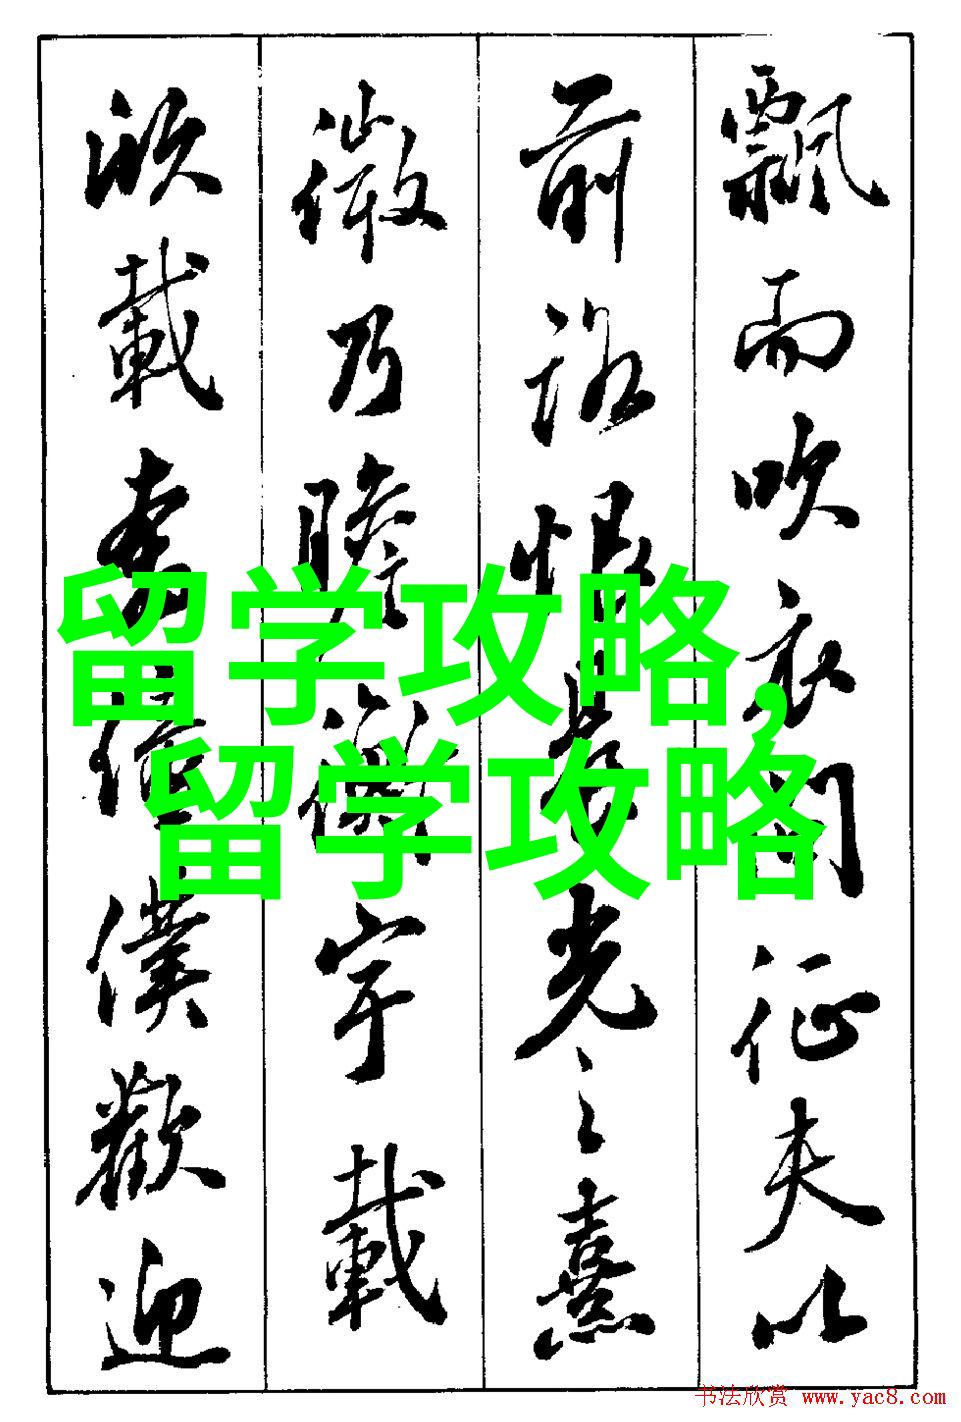 飄而吹衣問征夫以
前路恨晨光之熹
微乃瞻衡宇載
欣載奔僮僕歡迎
留学攻略,
留学攻略
书法欣赏 www.yac8.com